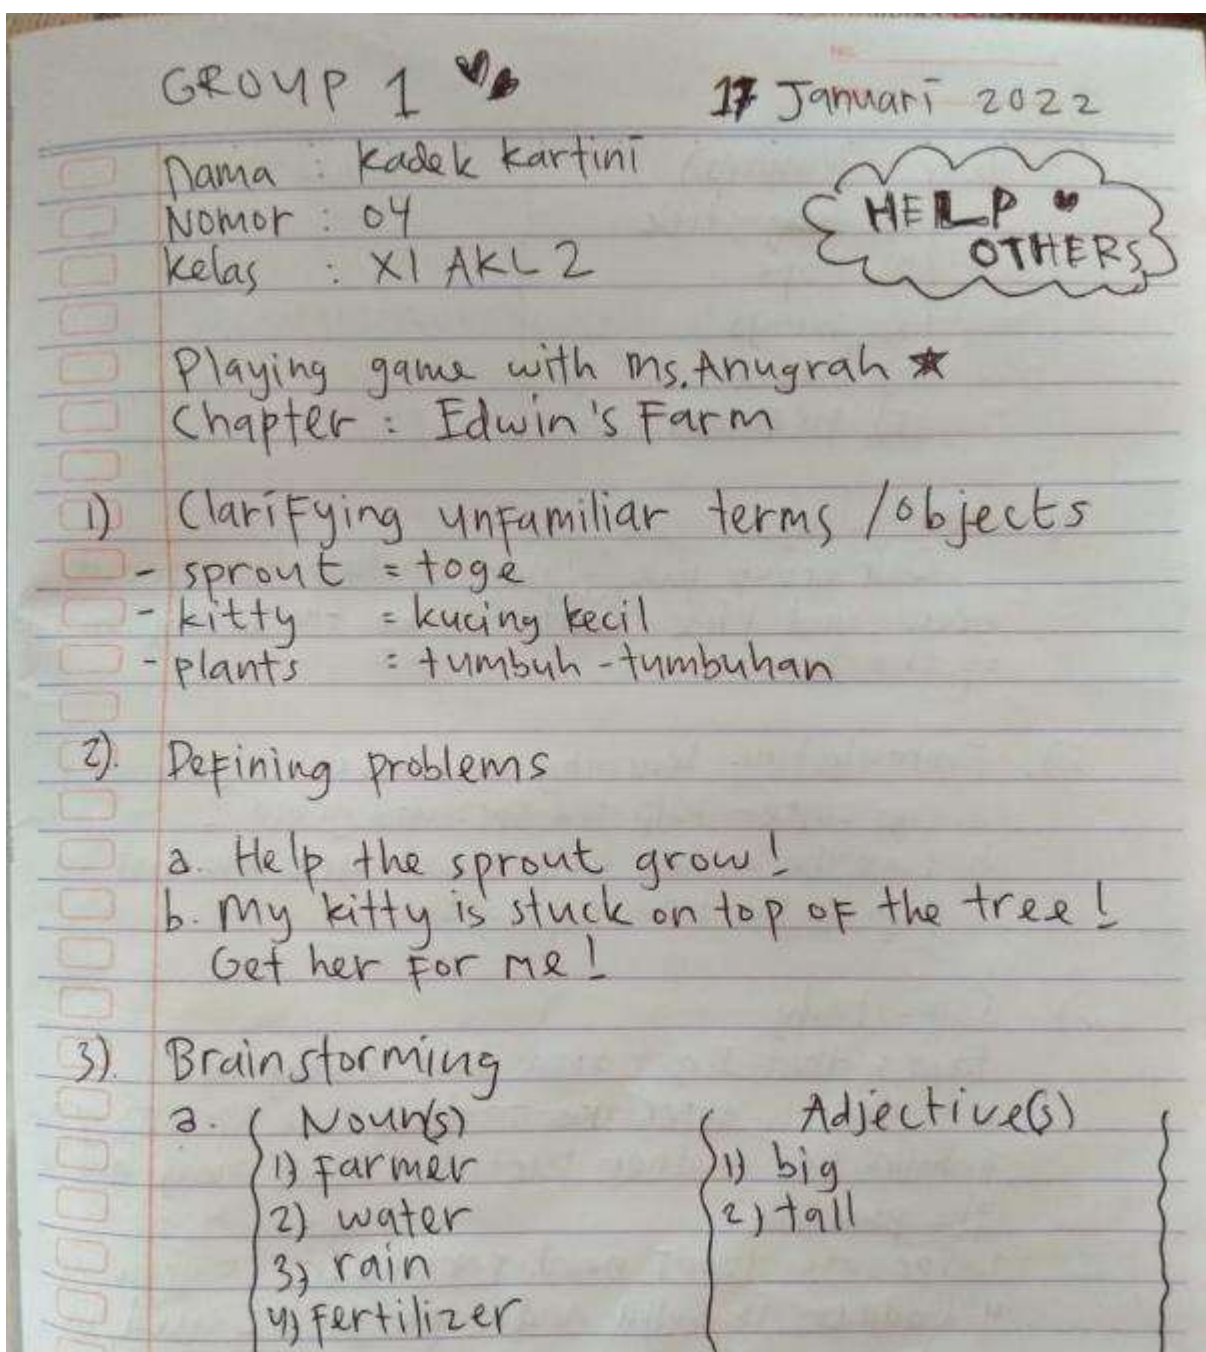 GROUP 1
17 Januari 2022
Nama : Kadek Kartini
Nomor : 04
Kelas : XI AKL 2
HELP
OTHERS
Playing game with Ms. Anugrah
Chapter : Edwin's Farm
1) Clarifying unfamiliar terms / objects
- sprout = toge
- kitty = kucing kecil
- plants = tumbuh-tumbuhan
2). Defining problems
a. Help the sprout grow!
b. My kitty is stuck on top of the tree!
Get her for me!
3). Brainstorming
a. Noun(s) Adjective(s)
1) farmer 1) big
2) water 2) tall
3) rain
4) fertilizer